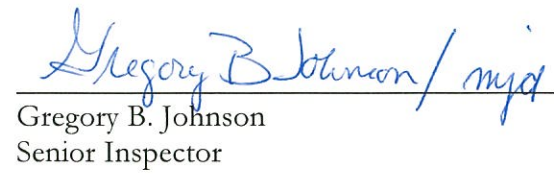 Gregory B Johnson / mjd
Gregory B. Johnson
Senior Inspector